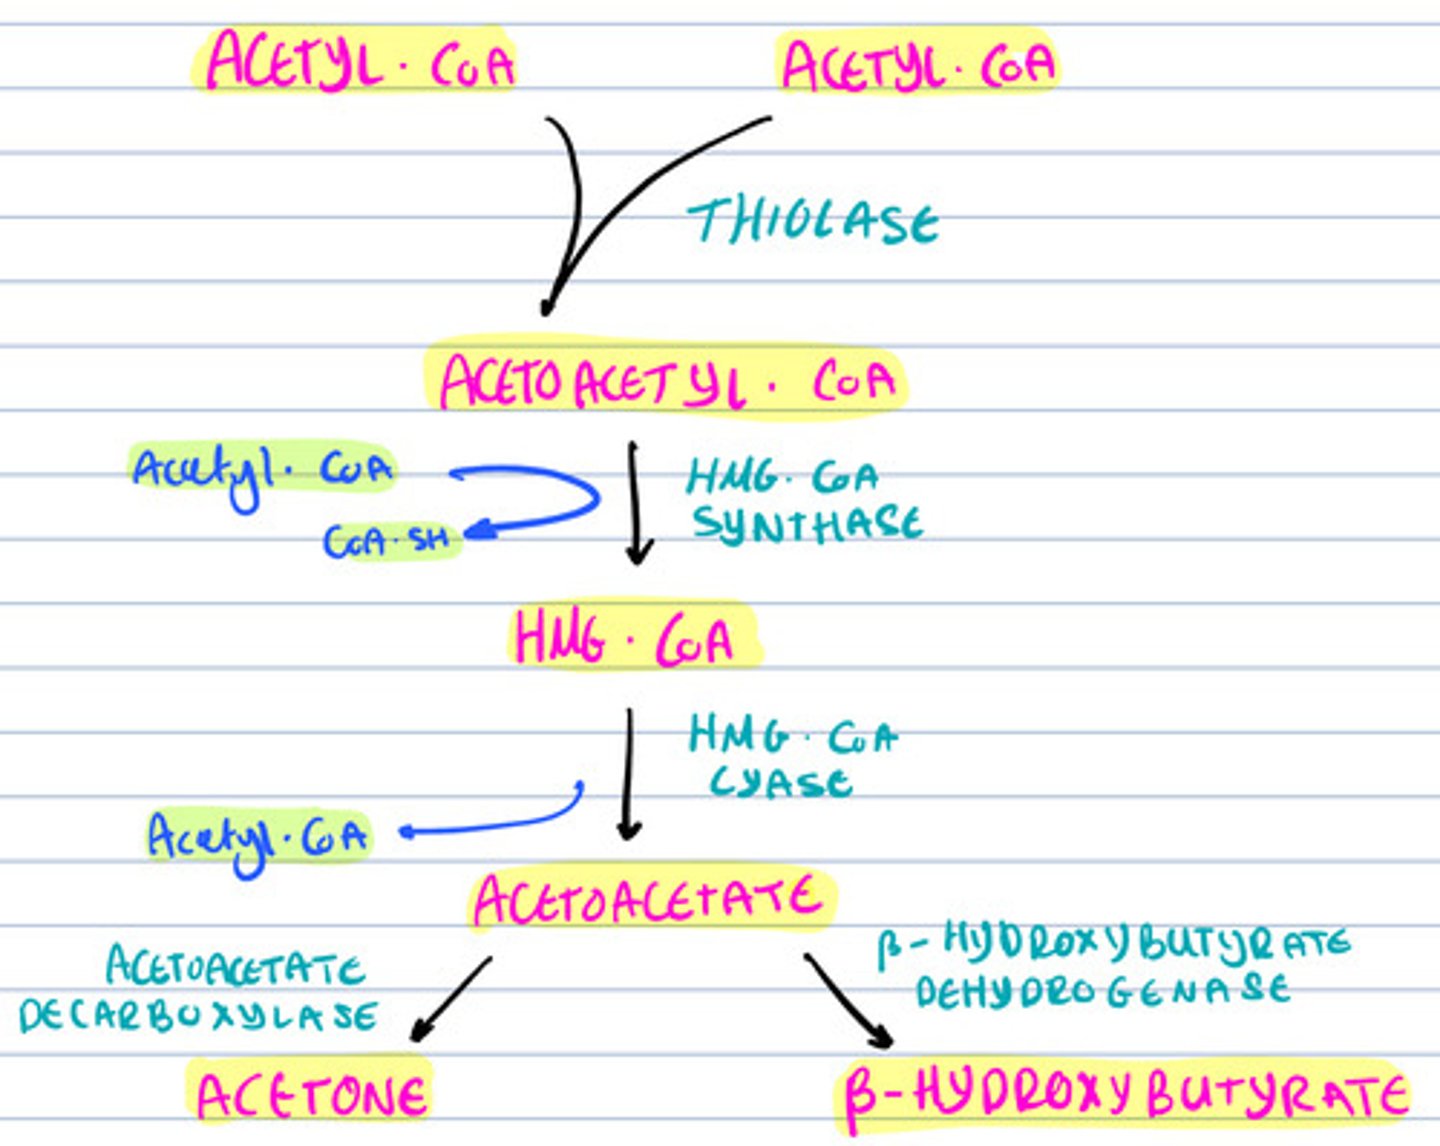 ACETYL · CoA ACETYL · CoA
THIOLASE
ACETOACETYL · CoA
Acetyl · CoA
HMG · CoA
SYNTHASE
CoA · SH
HMG · CoA
HMG · CoA
LYASE
Acetyl · CoA
ACETOACETATE
ACETOACETATE
DECARBOXYLASE
β-HYDROXYBUTYRATE
DEHYDROGENASE
ACETONE
β-HYDROXYBUTYRATE